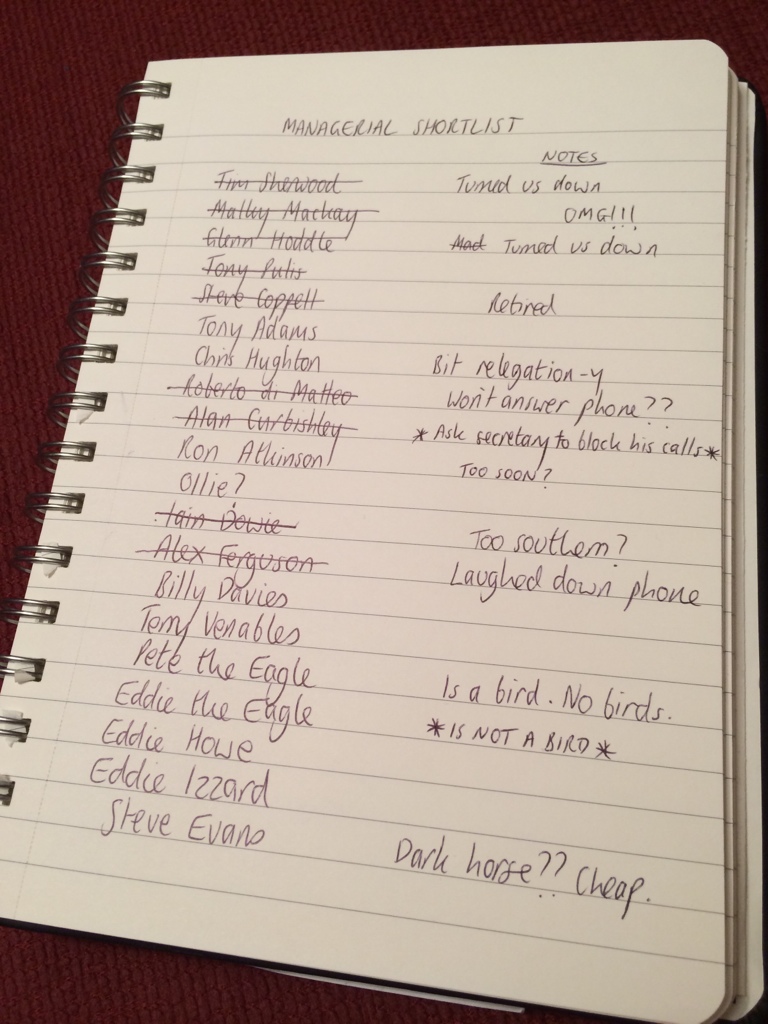 MANAGERIAL SHORTLIST
NOTES
Tim Sherwood Turned us down
Malky Mackay OMG!!!
Glenn Hoddle Mad Turned us down
Tony Pulis
Steve Coppell Retired
Tony Adams
Chris Hughton Bit relegation-y
Roberto di Matteo Won't answer phone??
Alan Curbishley *Ask secretary to block his calls*
Ron Atkinson TOO SOON?
Ollie?
Iain Dowie Too southern?
Alex Ferguson Laughed down phone
Billy Davies
Terry Venables
Pete the Eagle Is a bird. No birds.
Eddie the Eagle *IS NOT A BIRD*
Eddie Howe
Eddie Izzard
Steve Evans Dark horse?? Cheap.